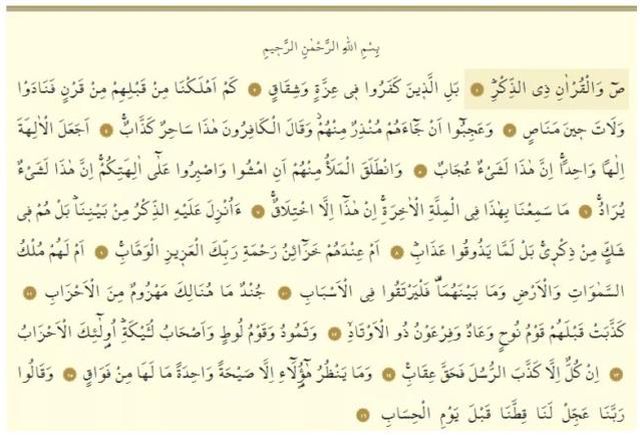 بِسْمِ اللهِ الرَّحْمٰنِ الرَّحِيمِ
صۤ وَالْقُرْاٰنِ ذِى الذِّكْرِۜ ﴿١﴾ بَلِ الَّذِينَ كَفَرُوا فِى عِزَّةٍ وَشِقَاقٍ ﴿٢﴾ كَمْ اَهْلَكْنَا مِنْ قَبْلِهِمْ مِنْ قَرْنٍ فَنَادَوْا
وَلَاتَ حِينَ مَنَاصٍ ﴿٣﴾ وَعَجِبُٓوا اَنْ جَٓاءَهُمْ مُنْذِرٌ مِنْهُمْۘ وَقَالَ الْكَافِرُونَ هٰذَا سَاحِرٌ كَذَّابٌۚ ﴿٤﴾ اَجَعَلَ الْاٰلِهَةَ
اِلٰهًا وَاحِدًاۚ اِنَّ هٰذَا لَشَىْءٌ عُجَابٌ ﴿٥﴾ وَانْطَلَقَ الْمَلَأُ مِنْهُمْ اَنِ امْشُوا وَاصْبِرُوا عَلٰٓى اٰلِهَتِكُمْۚ اِنَّ هٰذَا لَشَىْءٌ
يُرَادُۚ ﴿٦﴾ مَا سَمِعْنَا بِهٰذَا فِى الْمِلَّةِ الْاٰخِرَةِۚ اِنْ هٰذَٓا اِلَّا اخْتِلَاقٌۚ ﴿٧﴾ ءَاُنْزِلَ عَلَيْهِ الذِّكْرُ مِنْ بَيْنِنَاۜ بَلْ هُمْ فِى
شَكٍّ مِنْ ذِكْرِىۚ بَلْ لَمَّا يَذُوقُوا عَذَابِۜ ﴿٨﴾ اَمْ عِنْدَهُمْ خَزَٓائِنُ رَحْمَةِ رَبِّكَ الْعَزِيزِ الْوَهَّابِۚ ﴿٩﴾ اَمْ لَهُمْ مُلْكُ
السَّمٰوَاتِ وَالْاَرْضِ وَمَا بَيْنَهُمَا۠ فَلْيَرْتَقُوا فِى الْاَسْبَابِ ﴿١٠﴾ جُنْدٌ مَا هُنَالِكَ مَهْزُومٌ مِنَ الْاَحْزَابِ ﴿١١﴾
كَذَّبَتْ قَبْلَهُمْ قَوْمُ نُوحٍ وَعَادٌ وَفِرْعَوْنُ ذُو الْاَوْتَادِۙ ﴿١٢﴾ وَثَمُودُ وَقَوْمُ لُوطٍ وَاَصْحَابُ لْـَٔيْكَةِۜ اُو۬لٰٓئِكَ الْاَحْزَابُ
﴿١٣﴾ اِنْ كُلٌّ اِلَّا كَذَّبَ الرُّسُلَ فَحَقَّ عِقَابِ۟ ﴿١٤﴾ وَمَا يَنْظُرُ هٰٓؤُ۬لَٓاءِ اِلَّا صَيْحَةً وَاحِدَةً مَا لَهَا مِنْ فَوَاقٍ ﴿١٥﴾ وَقَالُوا
رَبَّنَا عَجِّلْ لَنَا قِطَّنَا قَبْلَ يَوْمِ الْحِسَابِ ﴿١٦﴾